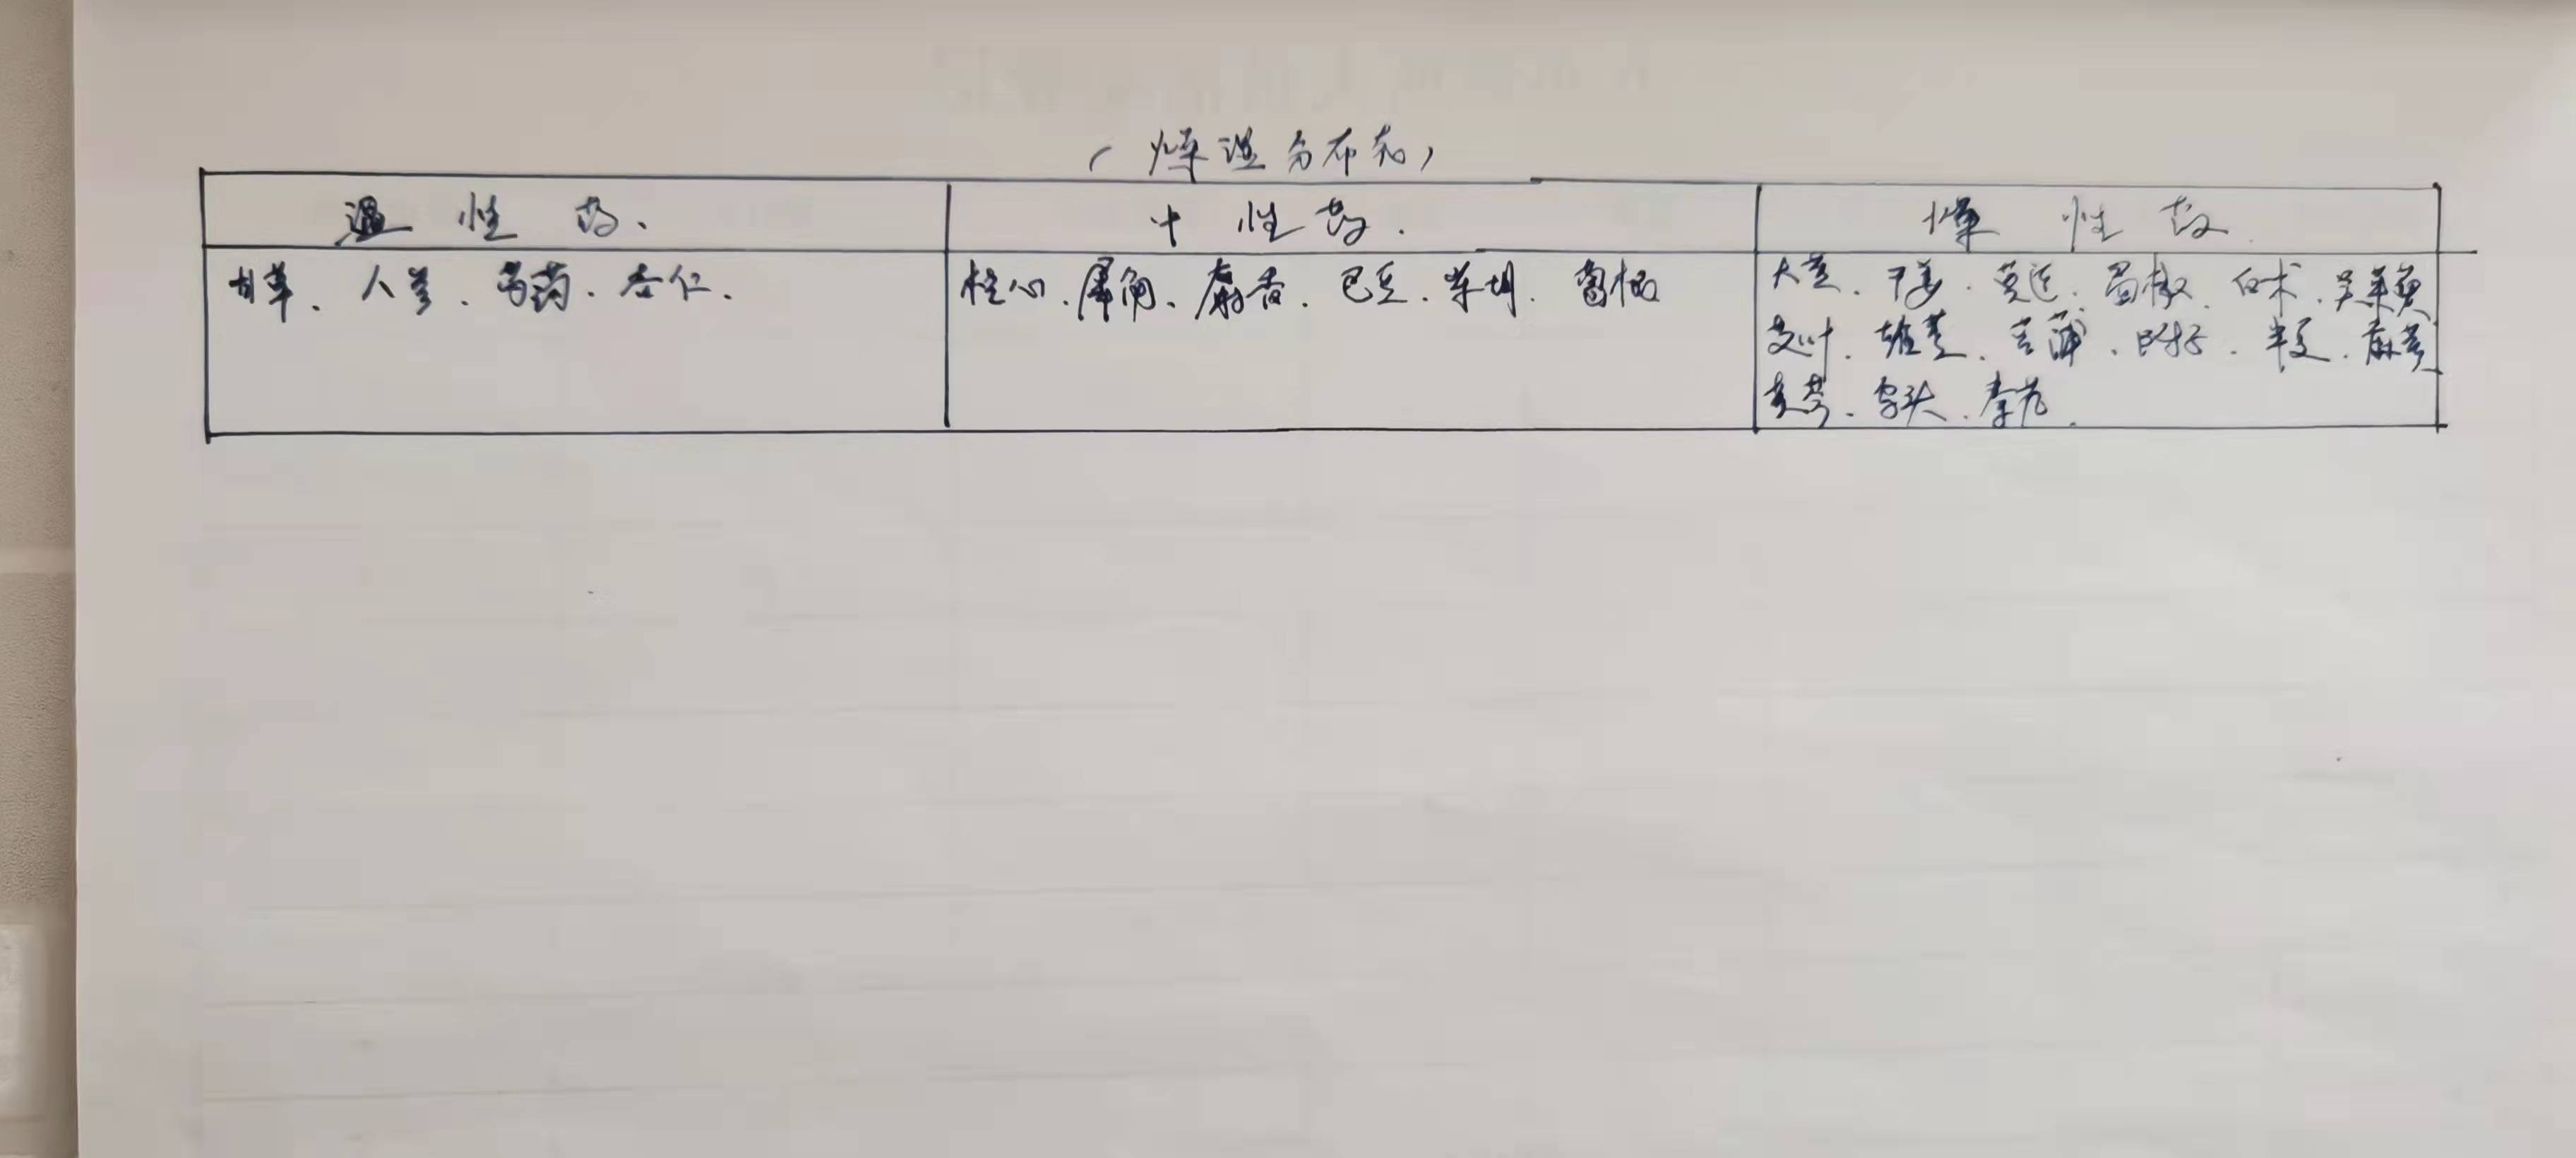 （燥湿分布表）
湿性药、
中性药.
燥性药.
甘草、人参、芍药、杏仁、
桂心、犀角、麝香、巴豆、柴胡、
大黄、干姜、黄连、蜀椒、白术、吴茱萸
艾叶、雄黄、菖蒲、附子、半夏、麻黄
黄芩、乌头、秦艽、